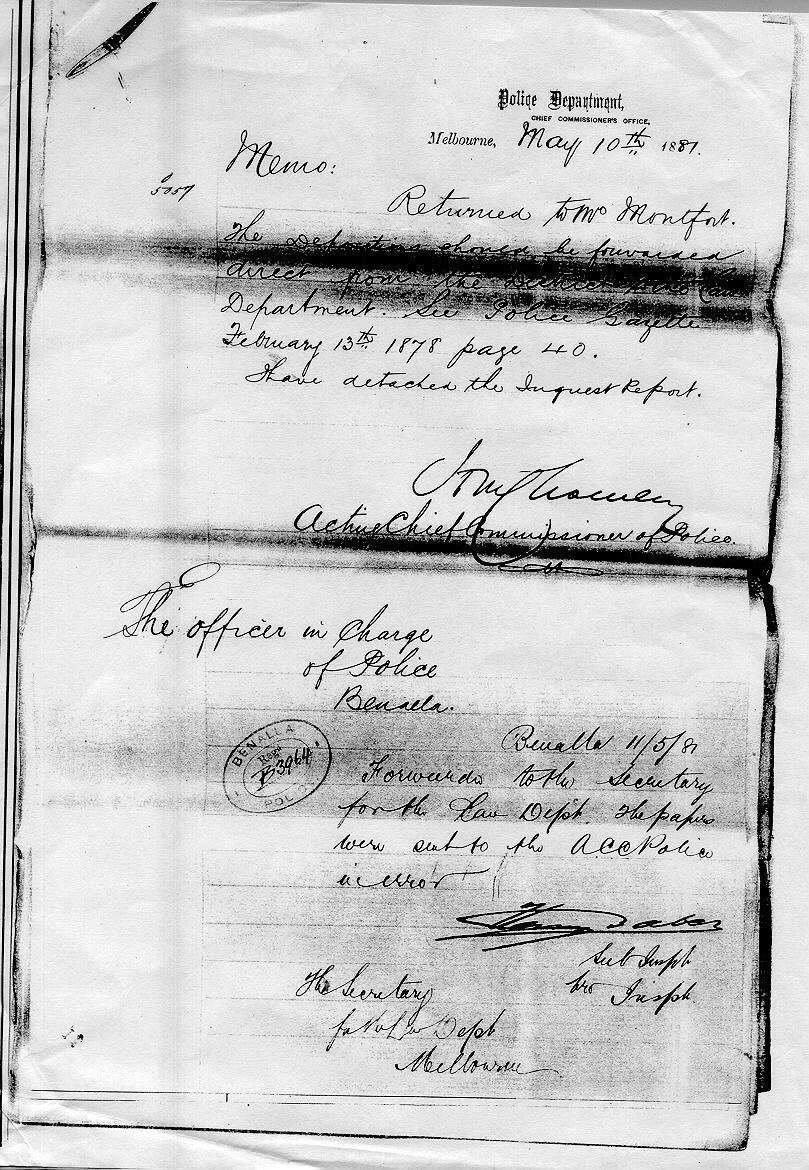 Police Department,
CHIEF COMMISSIONER'S OFFICE,
Melbourne, May 10th 1881.
Memo:
5057
Returned to Mr Montfort.
The Depositions should be forwarded
direct from the District to the Law
Department. See Police Gazette
February 13th 1878 page 40.
Have detached the Inquest Report.
Acting Chief Commissioner of Police.
The officer in Charge
of Police
Benalla.
Benalla 11/5/81
BENALLA
Regd
B3964
POLICE
Forwarded to the Secretary
for the Law Dept. The papers
were sent to the A.C.C. Police
in error
Sub Inspr
for Inspr.
The Secretary
for the Law Dept
Melbourne